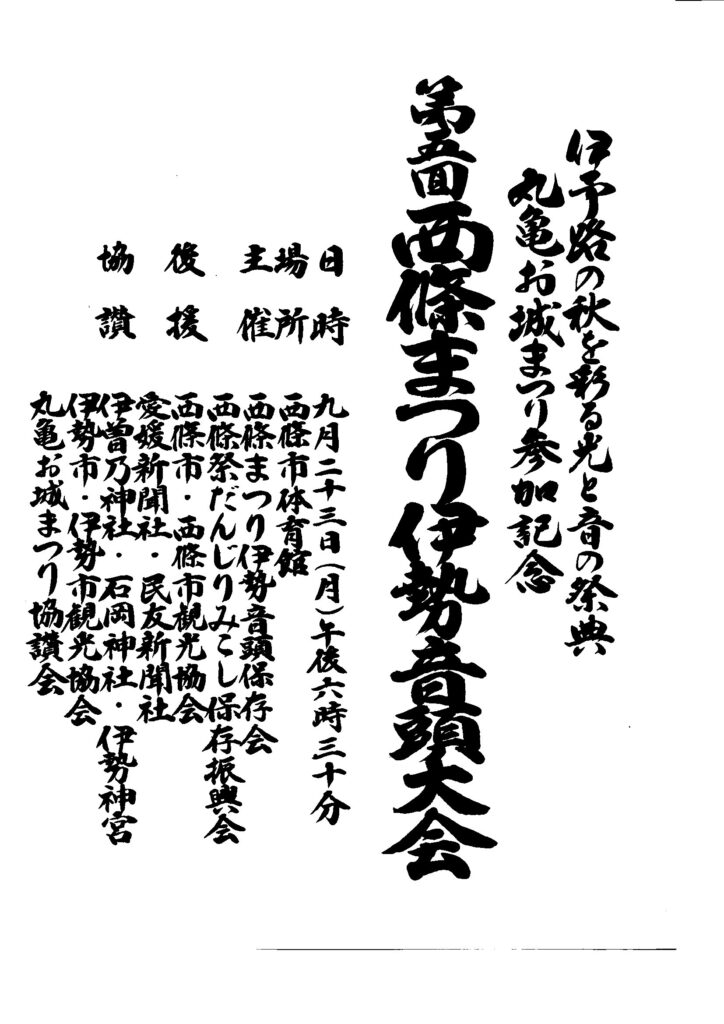 伊予路の秋を彩る光と音の祭典
丸亀お城まつり参加記念
第五回西條まつり伊勢音頭大会
日時 九月二十三日(月)午後六時三十分
場所 西條市体育館
主催 西條まつり伊勢音頭保存会
西條祭だんじりみこし保存振興会
後援 西條市・西條市観光協会
愛媛新聞社・民友新聞社
協讃 伊曽乃神社・石岡神社・伊勢神宮
伊勢市・伊勢市観光協会
丸亀お城まつり協讃会